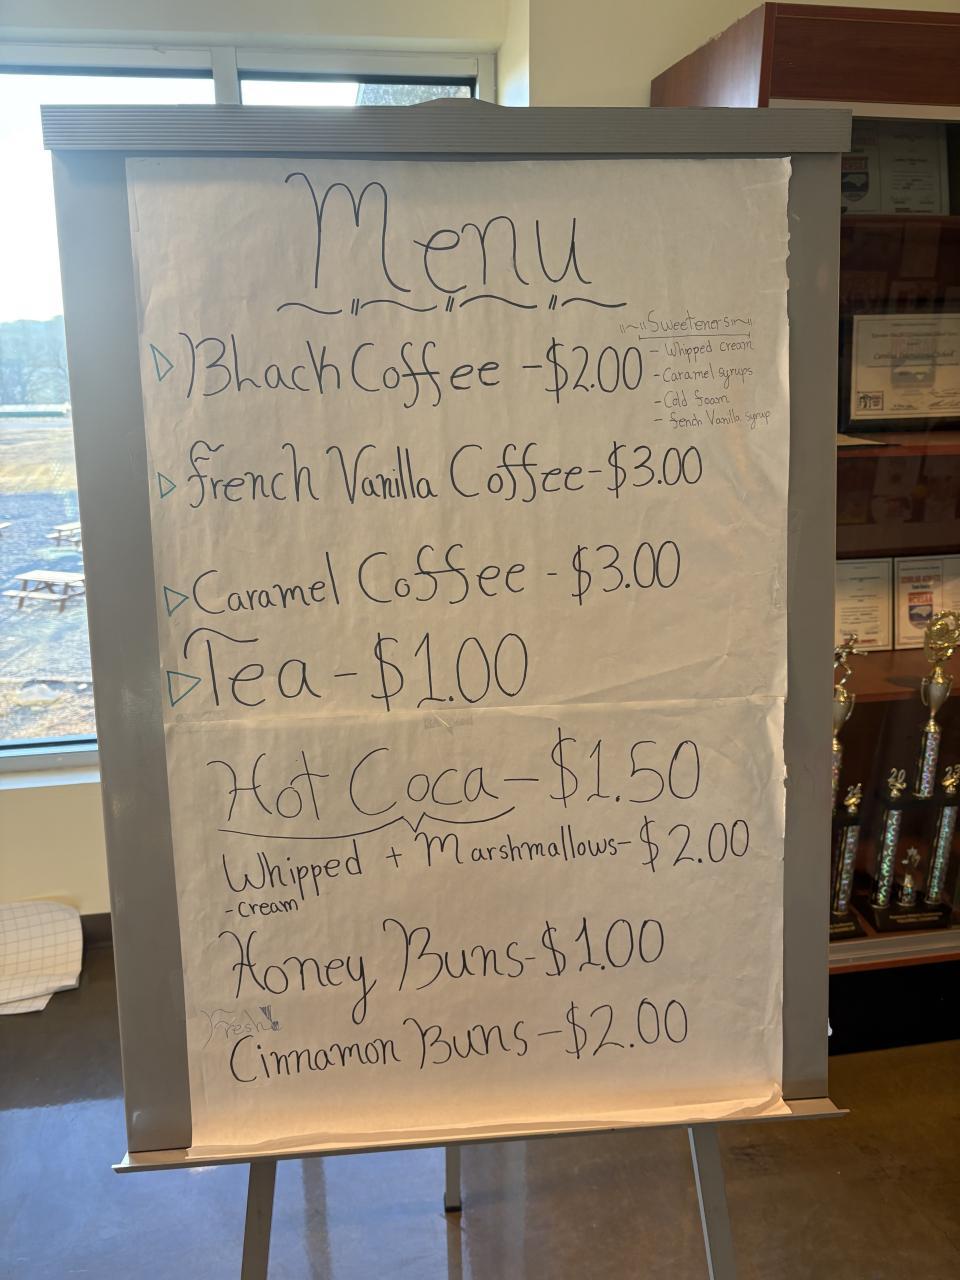 Menu
Black Coffee - $2.00
"~"Sweeteners~"
- Whipped cream
- Caramel syrups
- Cold foam
- french Vanilla syrup
French Vanilla Coffee - $3.00
Caramel Coffee - $3.00
Tea - $1.00
Hot Coca - $1.50
Whipped + Marshmallows - $2.00
- cream
Honey Buns - $1.00
Fresh!
Cinnamon Buns - $2.00